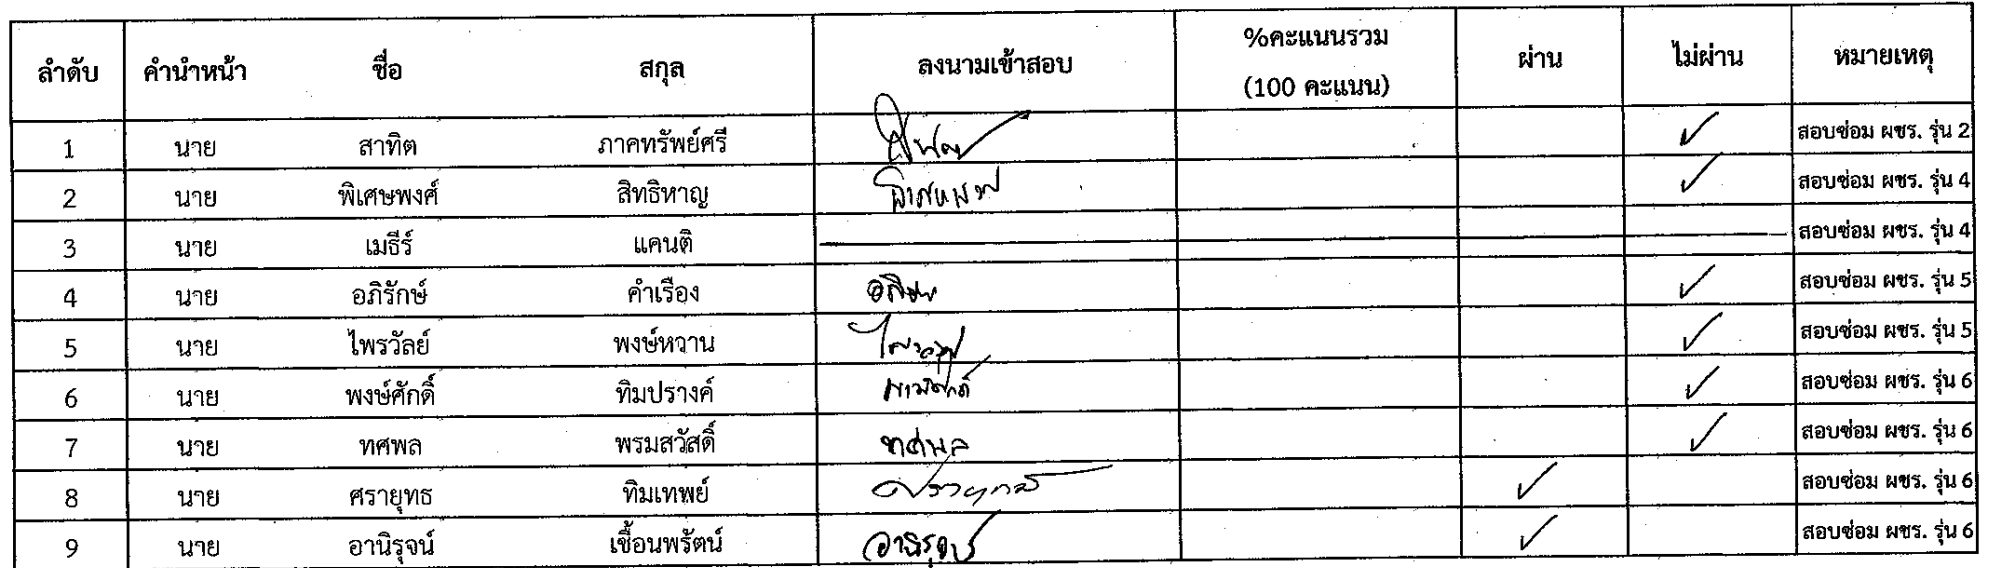 ลำดับ คำนำหน้า ชื่อ สกุล ลงนามเข้าสอบ %คะแนนรวม (100 คะแนน) ผ่าน ไม่ผ่าน หมายเหตุ
1 นาย สาทิต ภาคทรัพย์ศรี สาทิต ✓ สอบซ่อม ผชร. รุ่น 2
2 นาย พิเศษพงศ์ สิทธิหาญ ✓ สอบซ่อม ผชร. รุ่น 4
3 นาย เมธีร์ แคนติ สอบซ่อม ผชร. รุ่น 4
4 นาย อภิรักษ์ คำเรือง ✓ สอบซ่อม ผชร. รุ่น 5
5 นาย ไพรวัลย์ พงษ์หวาน ✓ สอบซ่อม ผชร. รุ่น 5
6 นาย พงษ์ศักดิ์ ทิมปรางค์ พงษ์ศักดิ์ ✓ สอบซ่อม ผชร. รุ่น 6
7 นาย ทศพล พรมสวัสดิ์ ทศพล ✓ สอบซ่อม ผชร. รุ่น 6
8 นาย ศรายุทธ ทิมเทพย์ ✓ สอบซ่อม ผชร. รุ่น 6
9 นาย อานิรุจน์ เชื้อนพรัตน์ อานิรุจน์ ✓ สอบซ่อม ผชร. รุ่น 6